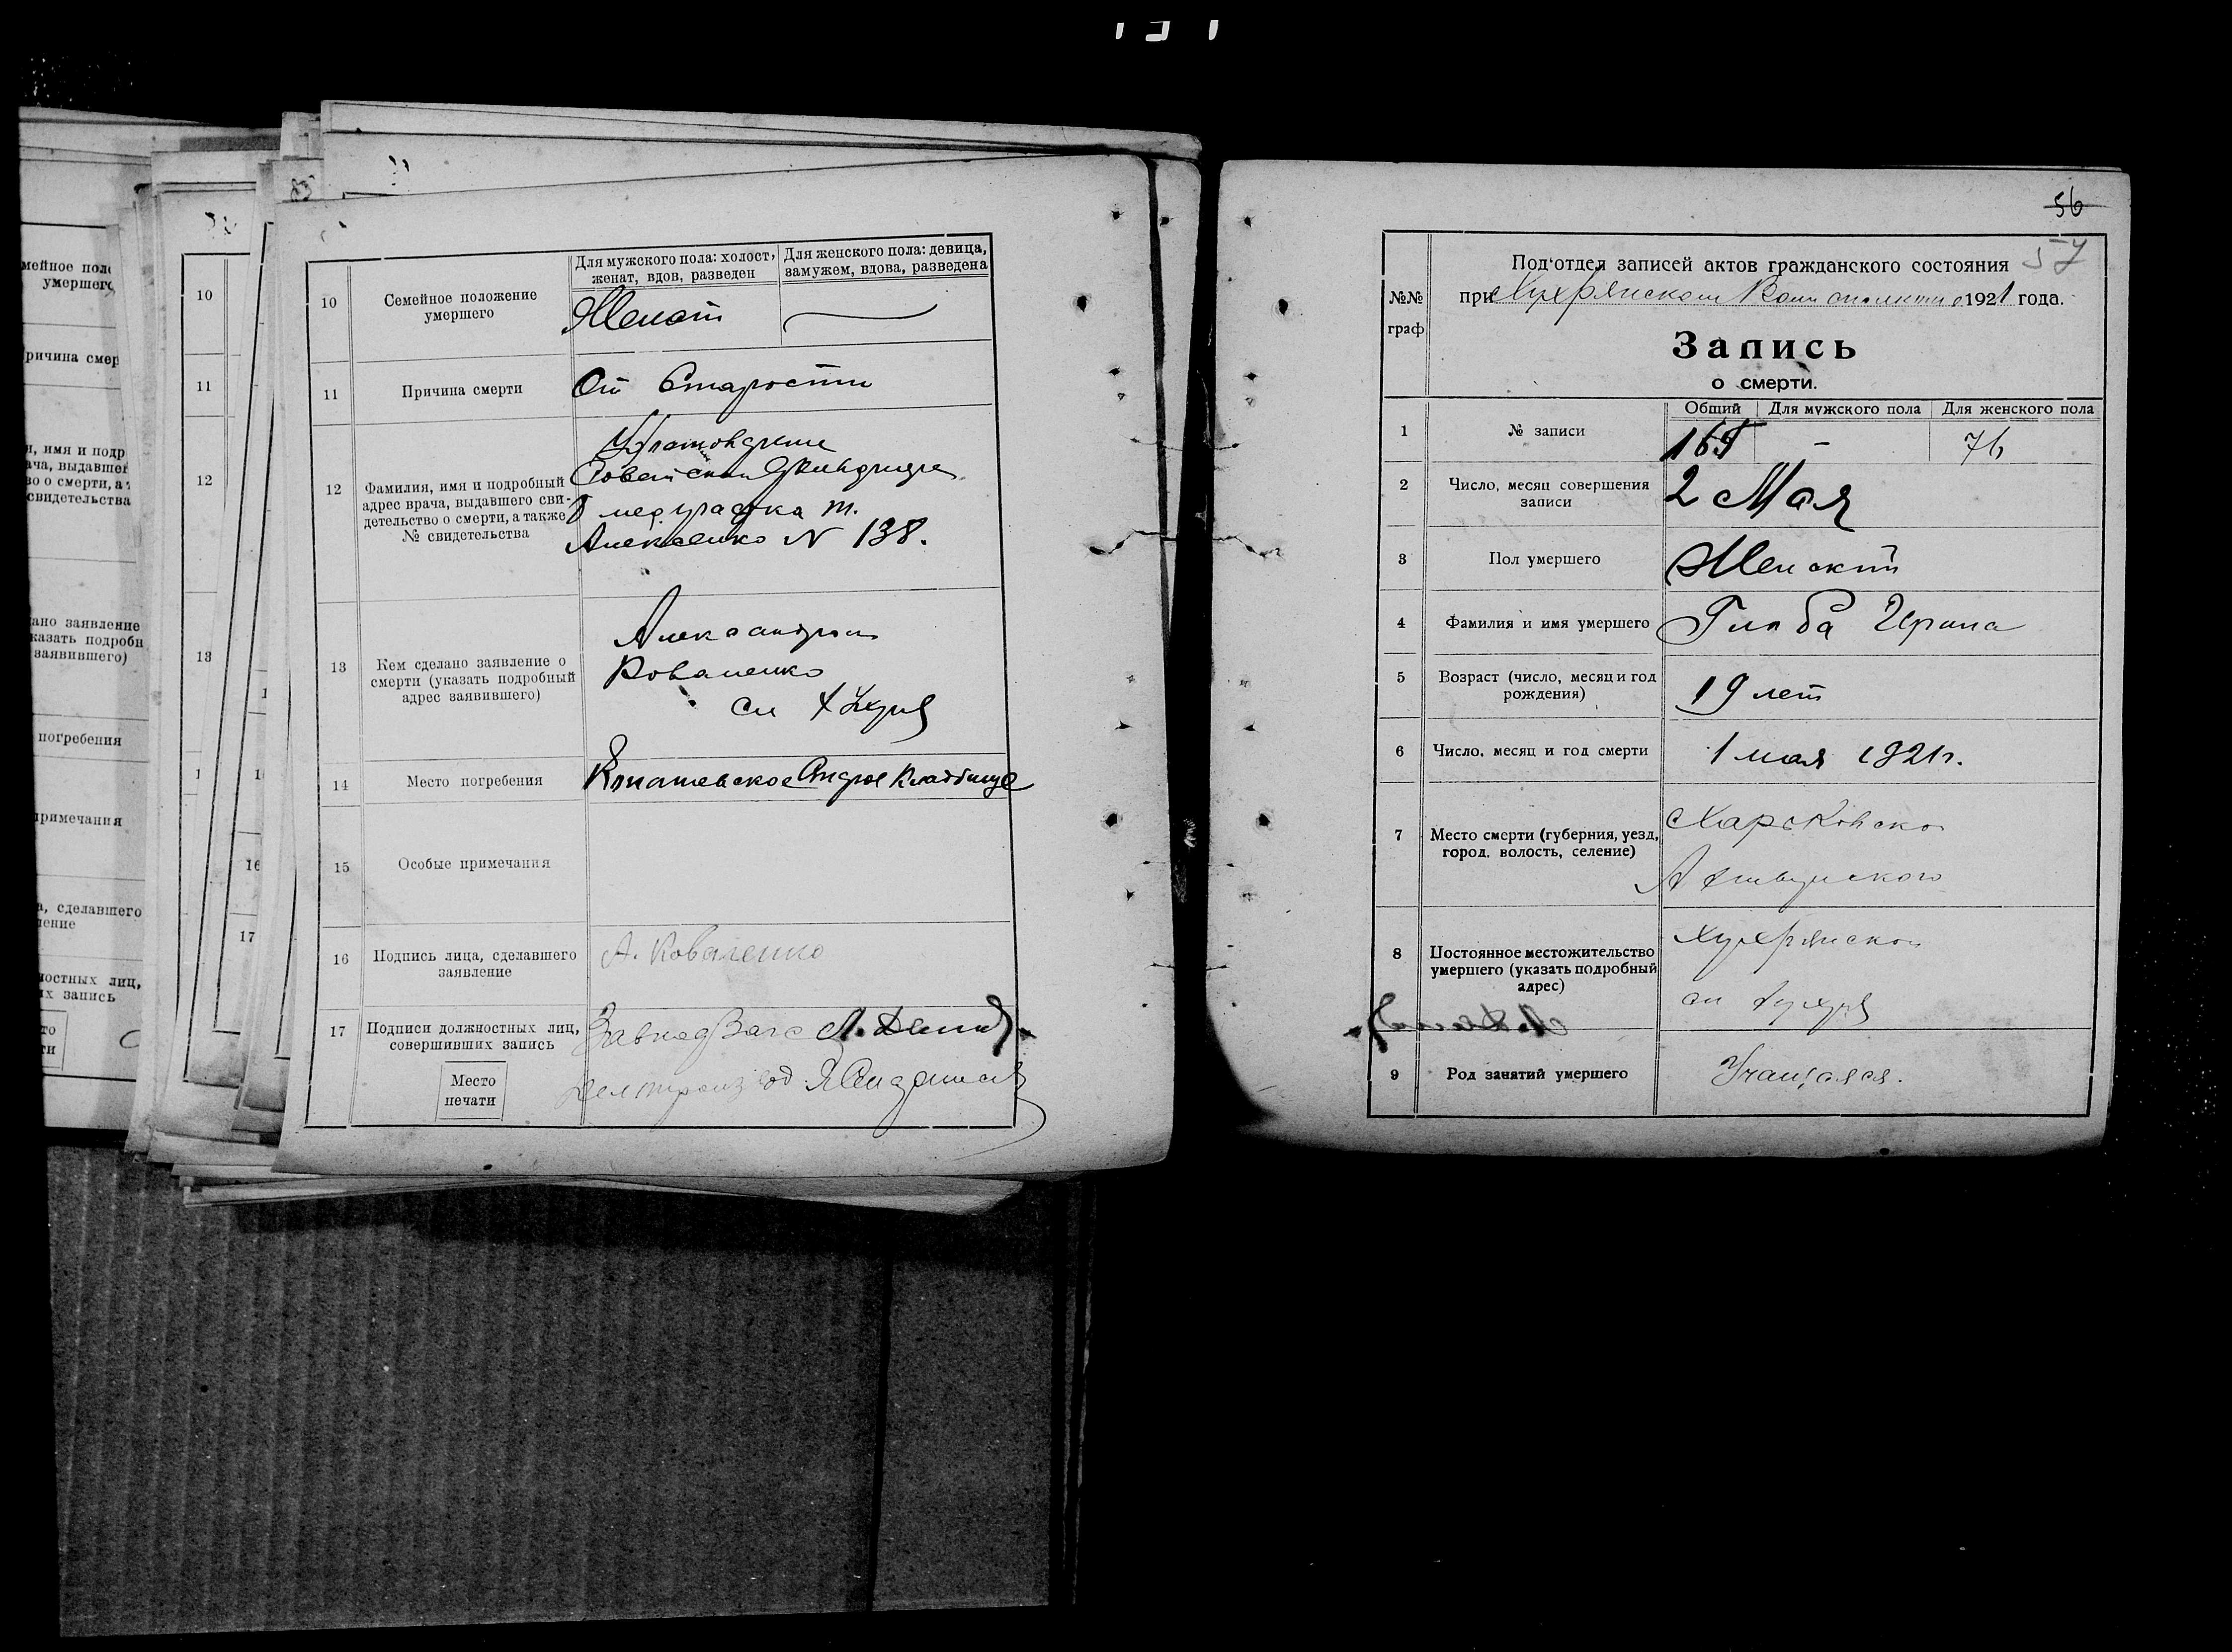 мейное пол
умершего
ричина смер
, имя и подр
ача, выдавшег
во о смерти, а т
свидетельства
ано заявление
казать подробн
заявившего)
погребения
римечания
а, сделавшего
ление
ностных лиц,
их запись
10
11
12
13
17
10
Семейное положение
умершего
Для мужского пола: холост,
женат, вдов, разведен
Для женского пола: девица,
замужем, вдова, разведена
Женат
11
Причина смерти
От Старости
12
Фамилия, имя и подробный
адрес врача, выдавшего сви-
детельство о смерти, а также
№ свидетельства
Алексенко N 138.
13
Кем сделано заявление о
смерти (указать подробный
адрес заявившего)
Александром
Коваленко
14
Место погребения
кладбище
15
Особые примечания
16
Подпись лица, сделавшего
заявление
А. Коваленко
17
Подписи должностных лиц,
совершивших запись
Место
печати
56
57
№№
граф
Под'отдел записей актов гражданского состояния
при Хухрянском 1921 года.
Запись
о смерти.
Общий
Для мужского пола
Для женского пола
1
№ записи
165
-
76
2
Число, месяц совершения
записи
2 Мая
3
Пол умершего
Женский
4
Фамилия и имя умершего
Глоба Ирина
5
Возраст (число, месяц и год
рождения)
19 лет
6
Число, месяц и год смерти
1 мая 1921 г.
7
Место смерти (губерния, уезд,
город, волость, селение)
Харьковско
Ахтырского
8
Постоянное местожительство
умершего (указать подробный
адрес)
Хухрянской
сл Хухря
9
Род занятий умершего
Учащаяся.